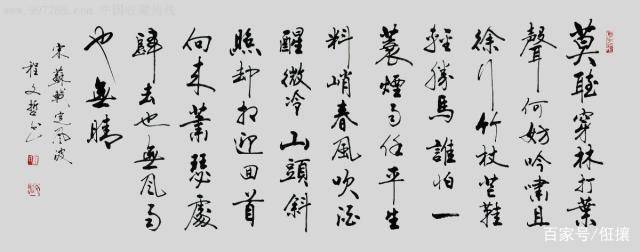 莫聽穿林打葉
聲何妨吟嘯且
徐行竹杖芒鞋
輕勝馬誰怕一
蓑煙雨任平生
料峭春風吹酒
醒微冷山頭斜
照却相迎回首
向來蕭瑟處
歸去也無風雨
也無晴
宋蘇軾定風波
程文哲書
www.997788.com 中国收藏热线
百家号/俇攘